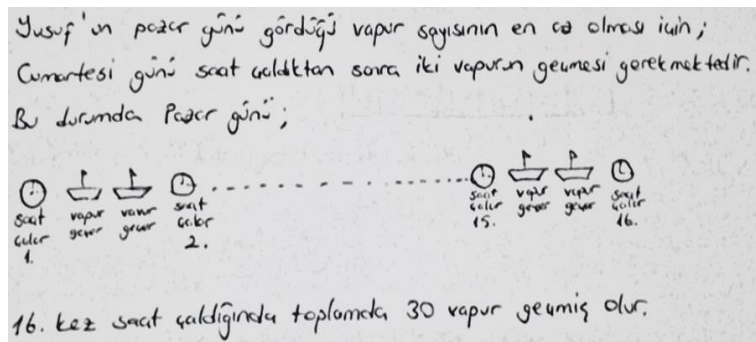 Yusuf'un pazar günü gördüğü vapur sayısının en az olması için;
Cumartesi günü saat çaldıktan sonra iki vapurun geçmesi gerekmektedir.
Bu durumda Pazar günü;
saat çalar 1.
vapur geçer
vapur geçer
saat çalar 2.
saat çalar 15.
vapur geçer
vapur geçer
saat çalar 16.
16. kez saat çaldığında toplamda 30 vapur geçmiş olur.